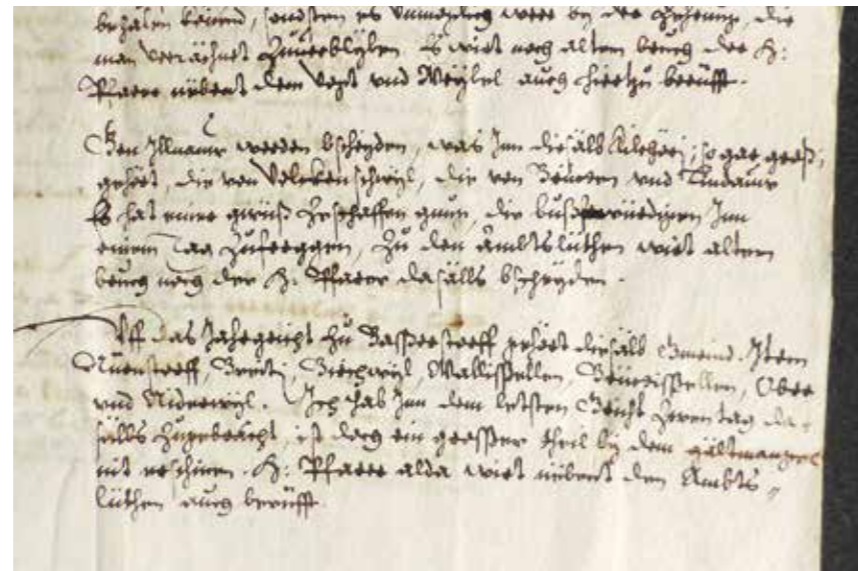 bezalen könend, sonsten es unmüglich were by der Zehrung, die
man verrächnet Zuverblyben. Es wirt nach altem bruch der H:
Pfarer näbent dem Vogt und Weybel auch hierzu berüfft.
Gen Illnauw werden bscheyden, was Inn diesälb Kilchöri, so gar groß,
gehört, die von Volcken schwyl, die von und Lindauw
Es hat mir gnug Zeschaffen gnug, die bußwürdigen Inn
einem Tag Zufeggen, Zu den Ambtslüthen wirt altem
bruch nach der H: Pfarer dasälbs bscheyden.
Uff das Jahrgricht Zu Basserstorff gehört diesälb Gmeind. Item
Nüenstorff, Breiti, Birchwyl, Wallissellen, Rieden, Ober
und Niderwyl. Ich hab Inn dem letsten Gricht Zwen tag da-
sälbs Zugebracht, ist doch ein grosser theil by dem gältmangel
nit erschinen. H: Pfarer alda wirt näbent den Ambts-
lüthen auch berüfft.